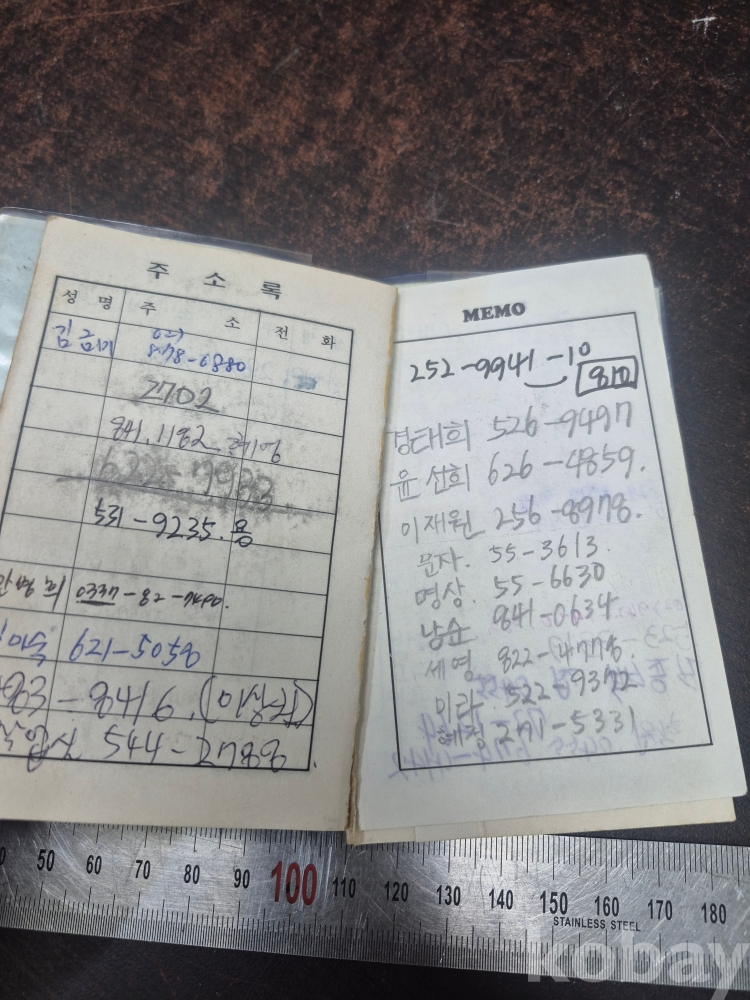 주 소 록
성 명 주 소 전 화
김금미
878-6880
2702
841.1182
622-7983
531-9235. 용
0337-82-7490.
621-5058
83-8416.
544-2788.
MEMO
252-9941-10
정태희 526-9497
윤선희 626-4859.
이재원 256-8978.
문자. 55-3613.
명상. 55-6630
낭순 841-0634
세영 822-4778.
미라 522-9372
혜정 271-5331
50 60 70 80 90 100 110 120 130 140 150 160 170 180
STAINLESS STEEL
kobay